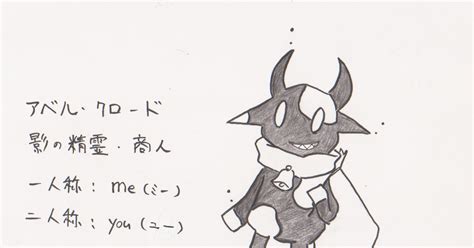 アベル・クロード
影の精霊・商人
一人称：me(ミー)
二人称：you(ユー)